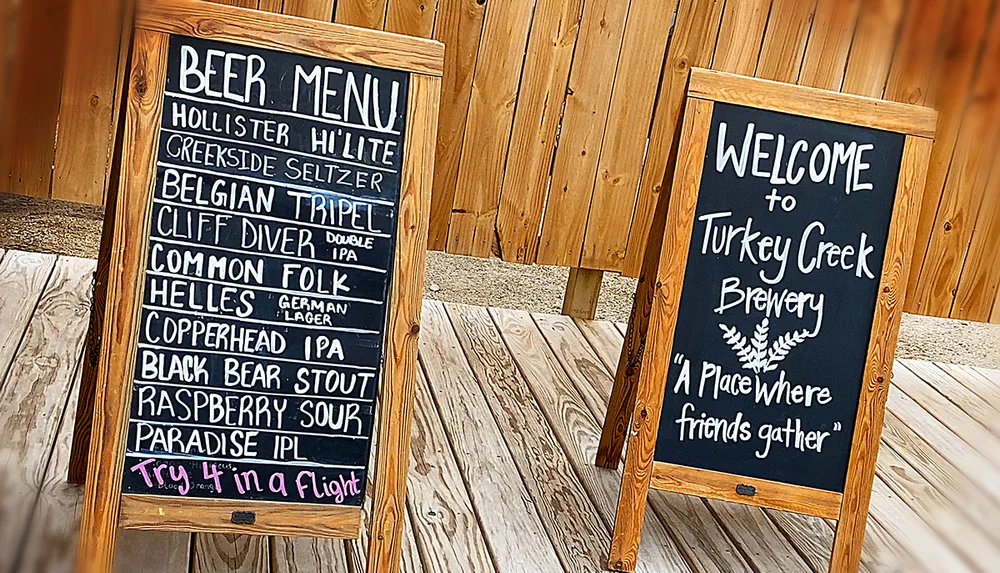 BEER MENU
HOLLISTER HI'LITE
CREEKSIDE SELTZER
BELGIAN TRIPEL
CLIFF DIVER DOUBLE IPA
COMMON FOLK
HELLES GERMAN LAGER
COPPERHEAD IPA
BLACK BEAR STOUT
RASPBERRY SOUR
PARADISE IPL
Try 4 in a flight
WELCOME
to
Turkey Creek
Brewery
"A Place where
friends gather"